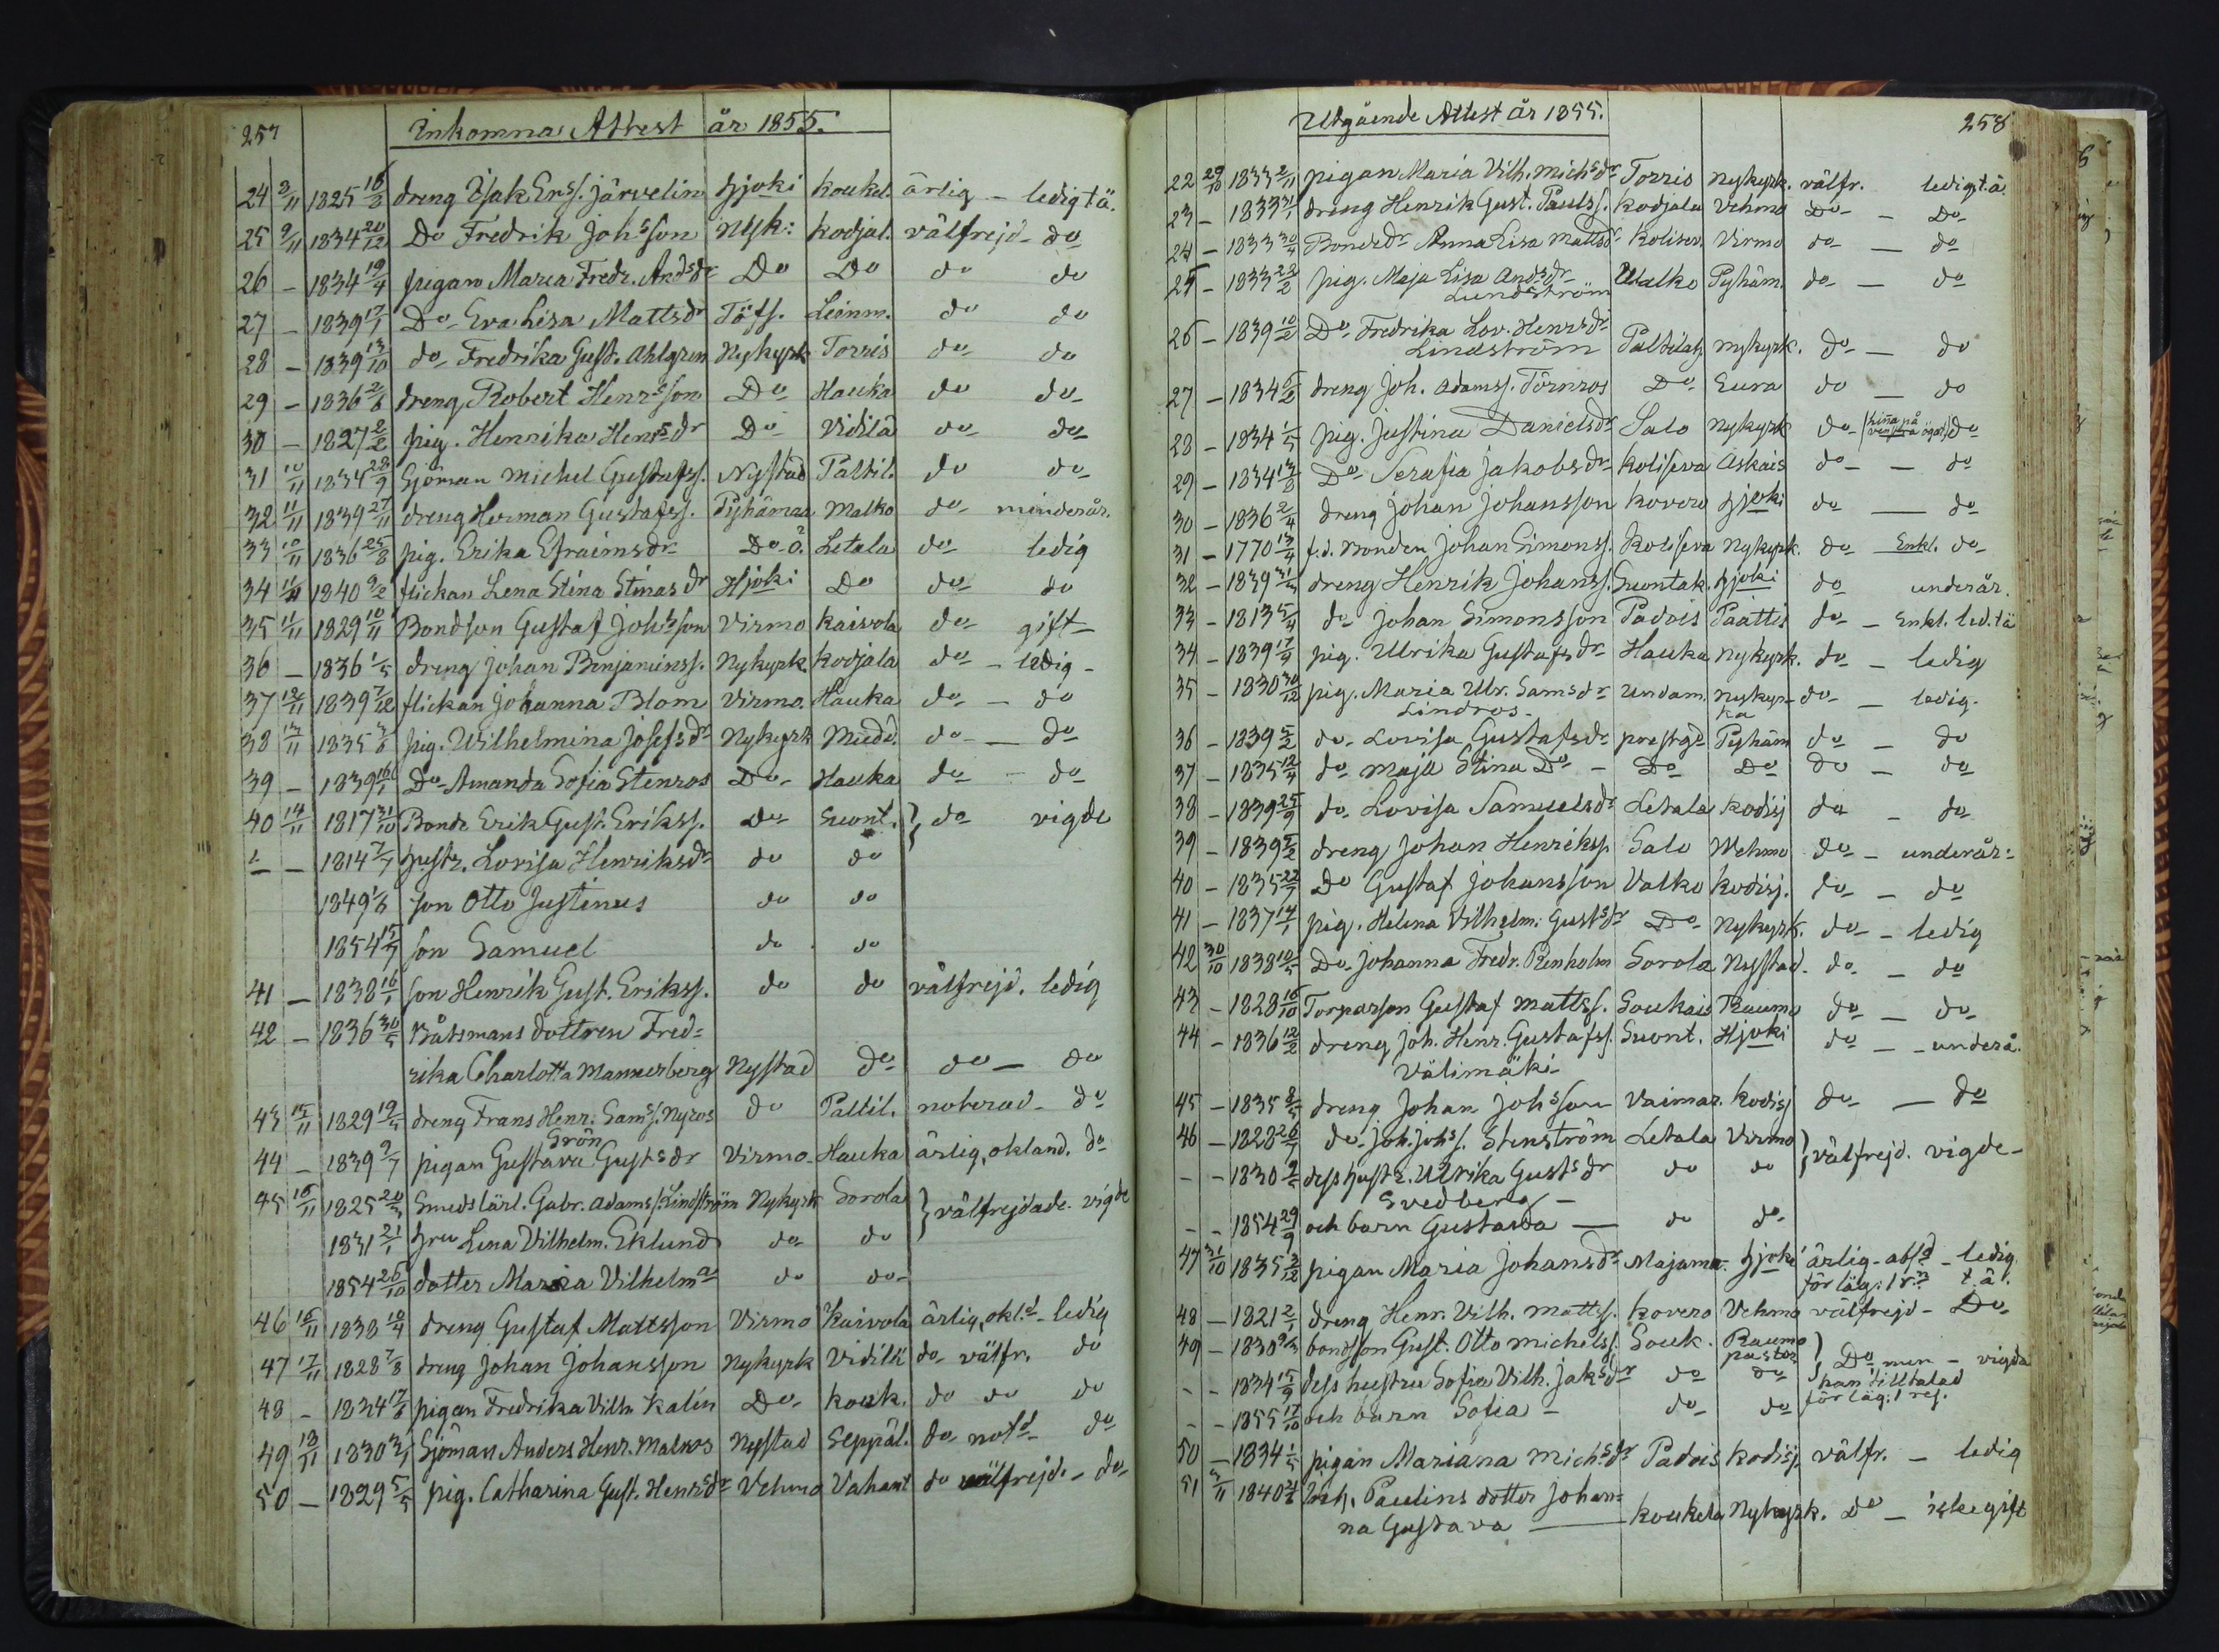 257 Inkomna Attest år 1855.
24 3/11 1825 16/3 dreng Isak Erss. Järvelin Hjoki Koukel. ärlig - ledig t.ä.
25 9/11 1834 20/12 Do Fredrik Johsson Nysk: Kodjal. välfrejd - do
26 - 1834 19/4 pigan Maria Fredr. Andsdr Do Do do do
27 - 1839 17/1 Do Eva Lisa Mattsdr Töfs. Leinm. do do
28 - 1839 13/10 do Fredrika Gust. Ahlgren Nykyrk Torris do do
29 - 1836 2/6 dreng Robert Henrsson Do Hauka do do
30 - 1827 2/2 pig. Henrika Henrsdr Do Vidilä do do
31 10/11 1834 28/9 Sjöman Michel Gustafss. Nystad Paltil. do do
32 11/11 1839 27/11 dreng Herman Gustafss. Pyhämaa Malko do minderår.
33 10/11 1836 25/8 pig. Erika Efraimsdr Do Ö. Letala do ledig
34 11/11 1840 9/2 flickan Lena Stina Stinasdr Hjoki Do do do
35 11/11 1829 10/11 Bondson Gustaf Johsson Virmo Kaivola do gift
36 - 1836 1/5 dreng Johan Benjaminss. Nykyrk Kodjala do - ledig -
37 12/11 1839 7/12 flickan Johanna Blom Virmo. Hauka do - do
38 13/11 1835 3/6 pig. Wilhelmina Josefsdr Nykyrk Mudd. do - do
39 - 1839 16/1 Do Amanda Sofia Stenros Do Hauka do - do
40 14/11 1817 31/10 Bonde Erik Gust. Erikss. Do Suont. } do vigde
- - 1814 7/7 hustr. Lovisa Henriksdr do do
1849 1/6 son Otto Justinus do do
1854 15/7 son Samuel do do
41 - 1838 16/1 son Henrik Gust. Erikss. do do välfrejd. ledig
42 - 1836 30/5 Båtsmans dottren Fred-
rika Charlotta Mannerberg Nystad do do - do
43 15/11 1829 19/5 dreng Frans Henr. Samss. Nyros do Paltil. noterad - do
Grön
44 - 1839 7/7 pigan Gustava Gustsdr Virmo Hauka ärlig, okland. do
45 16/11 1825 20/5 Smedslärl. Gabr. Adamss. Lindström Nykyrk Sorola } välfrejdade. vigde
1831 21/1 hru Lena Vilhelm. Eklund do do
1854 25/10 dotter Maria Vilhelma do do
46 16/11 1838 18/4 dreng Gustaf Mattsson Virmo Kaivola ärlig, okld - ledig
47 17/11 1828 7/8 dreng Johan Johansson Nykyrk Vidilä do välfr. do
48 - 1834 17/6 pigan Fredrika Vilh. Kalin Do kouk. do do do
49 18/11 1830 3/1 Sjöman Anders Henr. Malkos Nystad Seppäl. do notd do
50 - 1829 5/5 pig. Catharina Gust. Henrsdr Vehmo Vahant do välfrejd. - do
Utgående Attest år 1855. 258
22 29/10 1833 2/11 pigan Maria Vilh. Michsdr Torris Nykyrk. välfr. ledig t.ä.
23 - 1833 31/1 dreng Henrik Gust. Paulss. Kodjala Vehmo Do - Do
24 - 1833 30/4 Bondedr Anna Lisa Mattsdr Kolisev. Virmo do - do
25 - 1833 28/2 pig. Maja Lisa Andsdr Walko Pyhäm. do - do
Lundström
26 - 1839 10/2 Do Fredrika Lov. Henrsdr
Lindström Paltilah Nykyrk. do - do
27 - 1834 5/2 dreng Joh. Adamss. Törnros Do Eura do - do
28 - 1834 1/5 pig. Justina Danielsdr Salo Nykyrk do (hinna på venstra ögat) do
29 - 1834 13/8 Do Serafia Jakobsdr Koliseva Askais do - do
30 - 1836 2/4 dreng Johan Johansson Kovero Hjoki do - do
31 - 1770 13/4 f.d. Bonden Johan Simonss. Koliseva Nykyrk. do Enkl. do
32 - 1839 31/5 dreng Henrik Johanss. Suontak. Hjoki do underår.
33 - 1813 5/4 do Johan Simonsson Padois Paattis do - Enkl. led. t.ä
34 - 1839 17/9 pig. Ulrika Gustafsdr Hauka Nykyrk. do - ledig
35 - 1830 30/12 pig. Maria Ulr. Samsdr Undam. Nykyr- do - ledig.
Lindros - ka
36 - 1839 5/2 do Lovisa Gustafsdr prestgd Pyhäm do - do
37 - 1835 12/4 do Maja Stina Do - Do Do do - do
38 - 1839 25/9 do Lovisa Samuelsdr Letala Kodisj do - do
39 - 1839 5/2 dreng Johan Henrikss. Salo Wehmo do - underår:
40 - 1835 22/7 Do Gustaf Johansson Valko Kodisj. do - do
41 - 1837 14/1 pig. Helena Vilhelm: Gustsdr Do Nykyrk. do - ledig
42 30/10 1838 10/5 Do Johanna Fredr. Renholm Sorola Nystad. do - do
43 - 1828 16/10 Torparson Gustaf Mattss. Soukais Raumo do - do
44 - 1836 12/2 dreng Joh. Henr. Gustafss. Suont. Hjoki do - - underå.
Välimäki
45 - 1835 8/5 dreng Johan Johsson Vaimar. Kodisj do - do
46 - 1828 26/7 do Joh. Johss. Stenström Letala Virmo } välfrejd. vigde -
- - 1830 9/5 dess hustr. Ulrika Gustsdr do do
Svedberg -
- - 1854 29/9 och barn Gustava - do do
47 31/10 1835 2/12 pigan Maria Johansdr Majama. Hjoki ärlig - absd - ledig
för läg: 1 rn t.ä.
48 - 1821 2/1 dreng Henr. Vilh. Mattss. Kovero Vehmo välfrejd - Do
49 - 1830 9/3 bondson Gust. Otto Michelss. Souk. Raumo
pastor } Do men - vigda
- - 1834 15/9 dess hustru Sofia Vilh. Jaksdr do do han tilltalad
- - 1855 17/10 och barn Sofia - do do för läg: 1 res.
50 - 1834 1/5 pigan Mariana Michsdr Padois Kodisj. välfr. - ledig
51 5/11 1840 24/6 Inh. Paulins dotter Johan-
na Gustava - Koukela Nykyrk. Do - icke gift